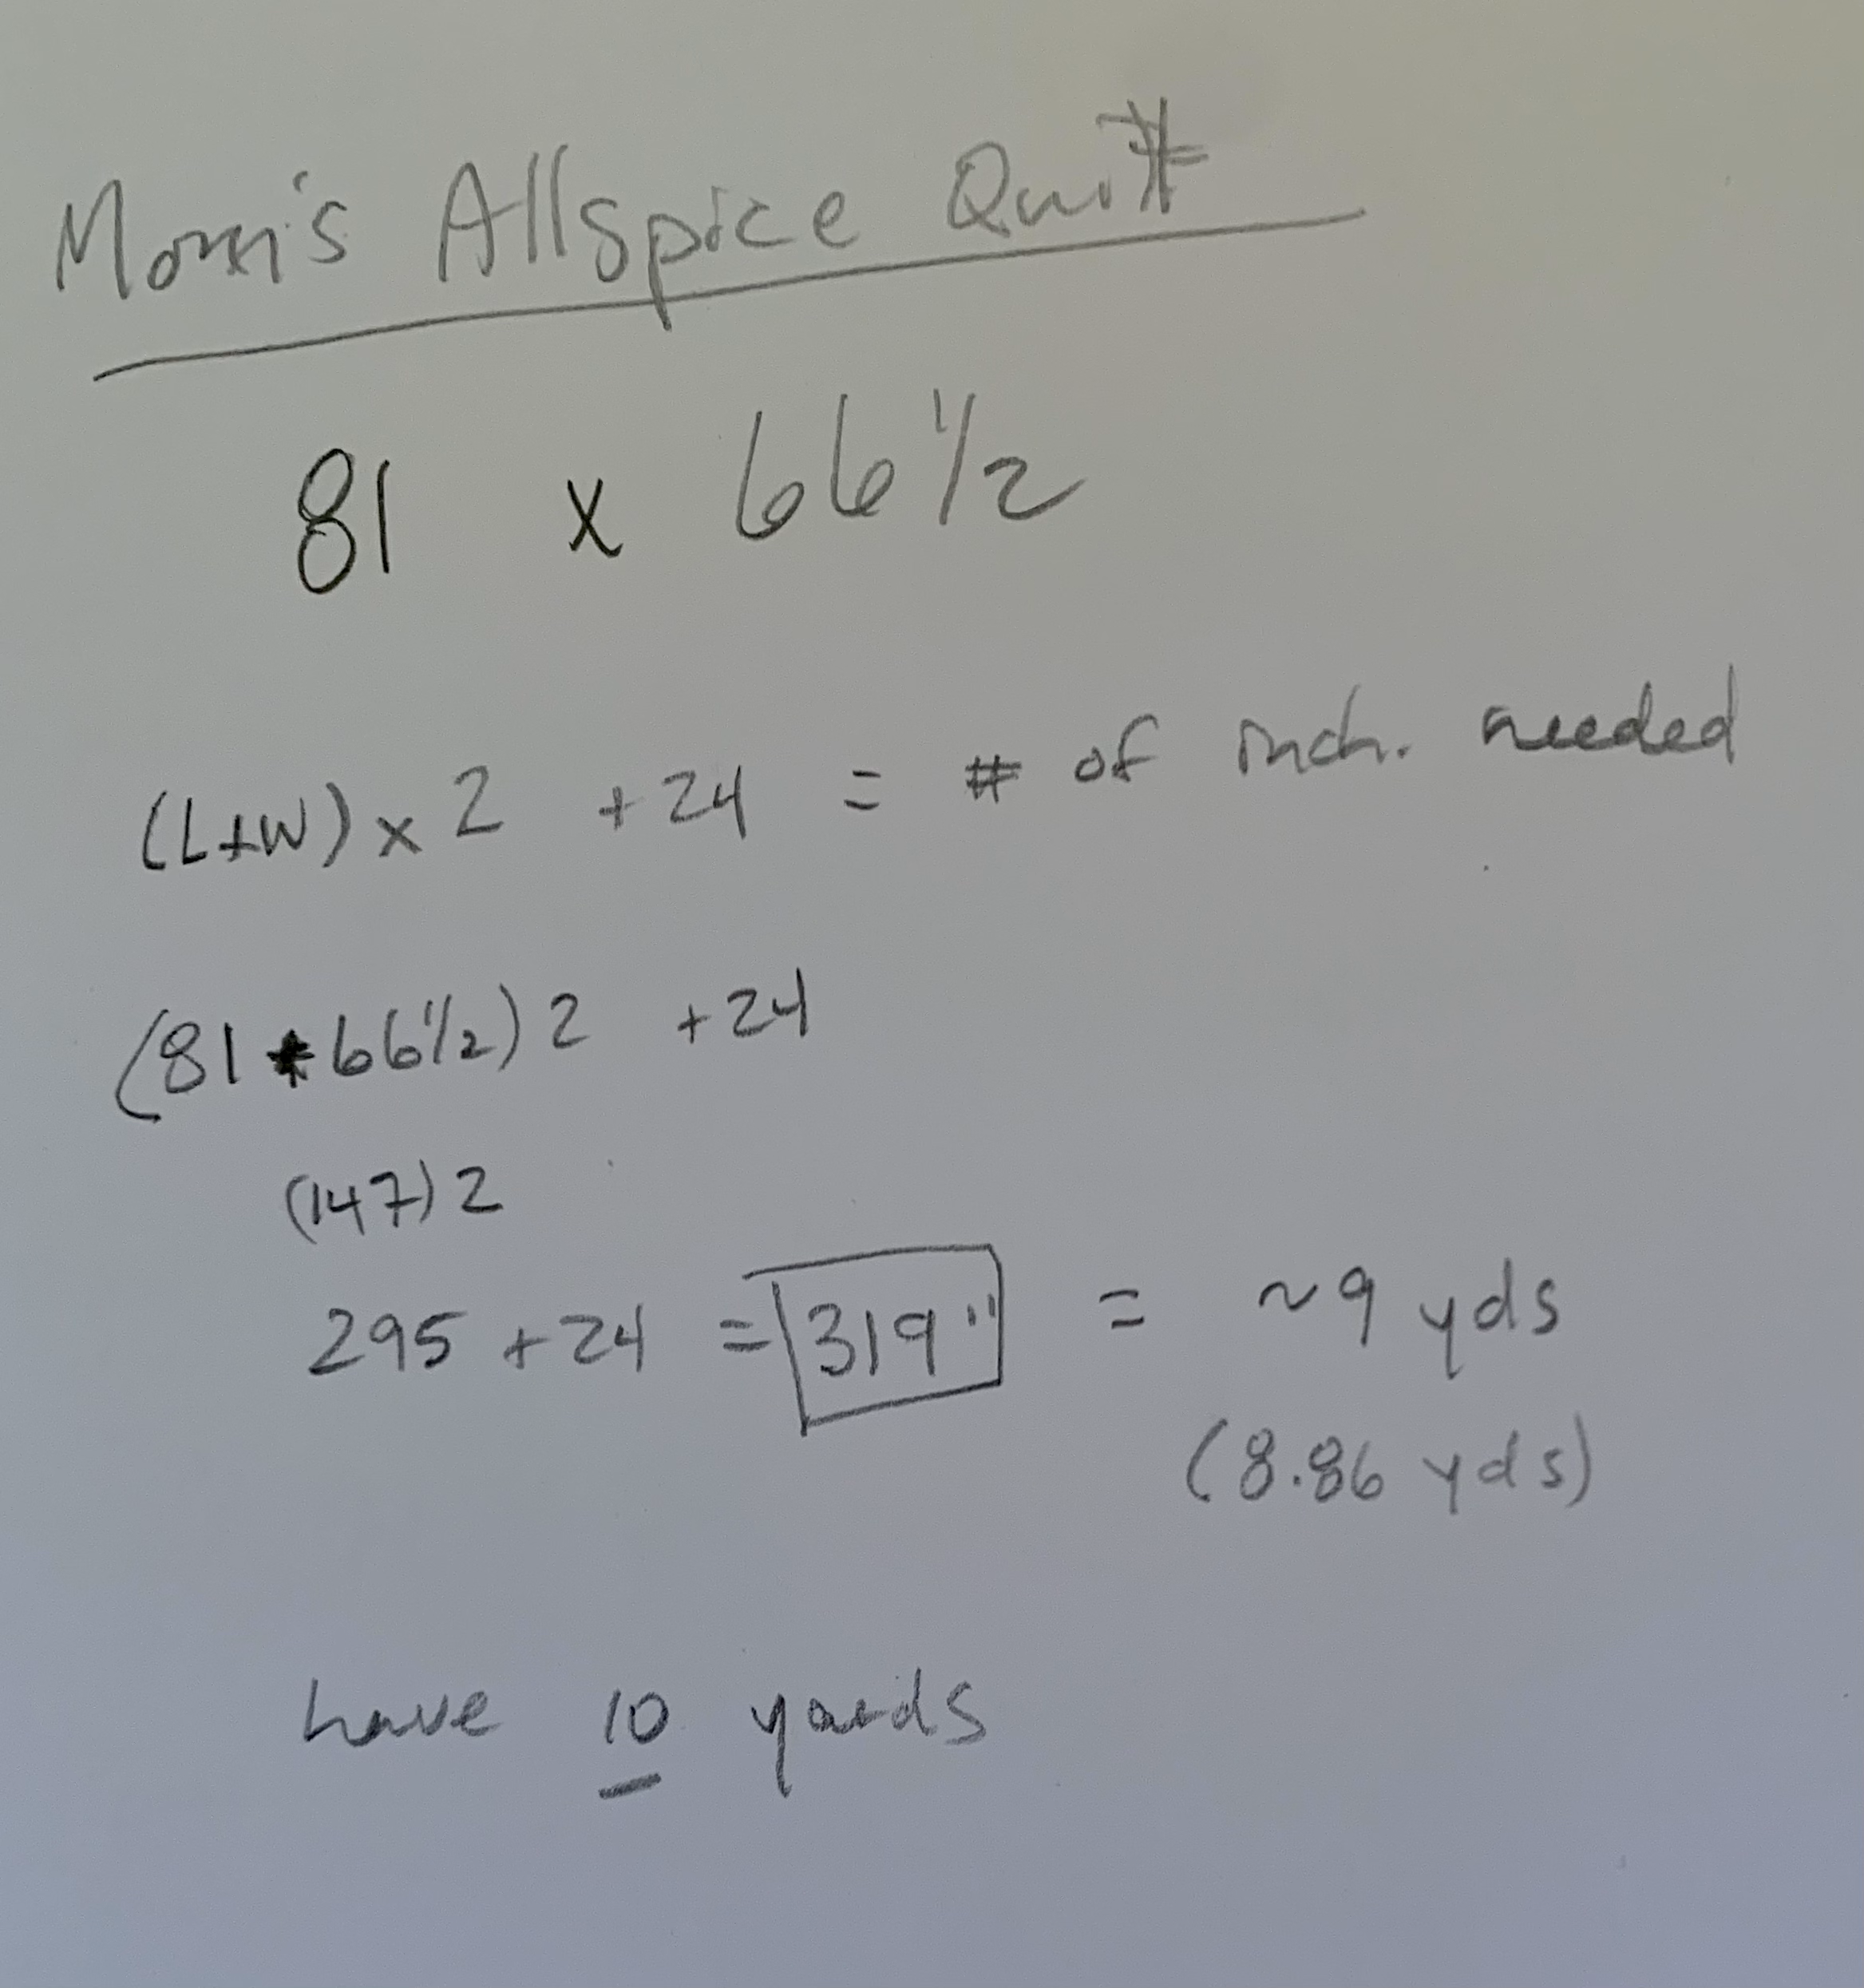 Mom's Allspice Quilt
81 x 66 1/2
(L+W) x 2 + 24 = # of inch. needed
(81 + 66 1/2) 2 + 24
(147) 2
295 + 24 = 319" = ~9 yds
(8.86 yds)
have 10 yards